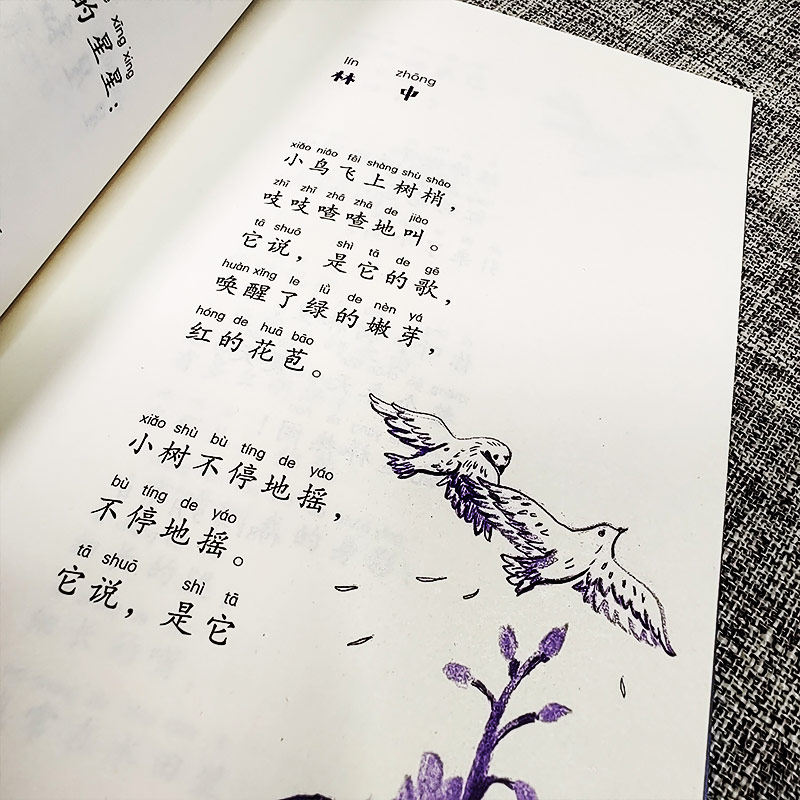 xīng xīng
的星星：
lín zhōng
林中
xiǎo niǎo fēi shàng shù shāo
小鸟飞上树梢，
zhī zhī zhā zhā de jiào
吱吱喳喳地叫。
tā shuō shì tā de gē
它说，是它的歌，
huàn xǐng le lǜ de nèn yá
唤醒了绿的嫩芽，
hóng de huā bāo
红的花苞。
xiǎo shù bù tíng de yáo
小树不停地摇，
bù tíng de yáo
不停地摇。
tā shuō shì tā
它说，是它